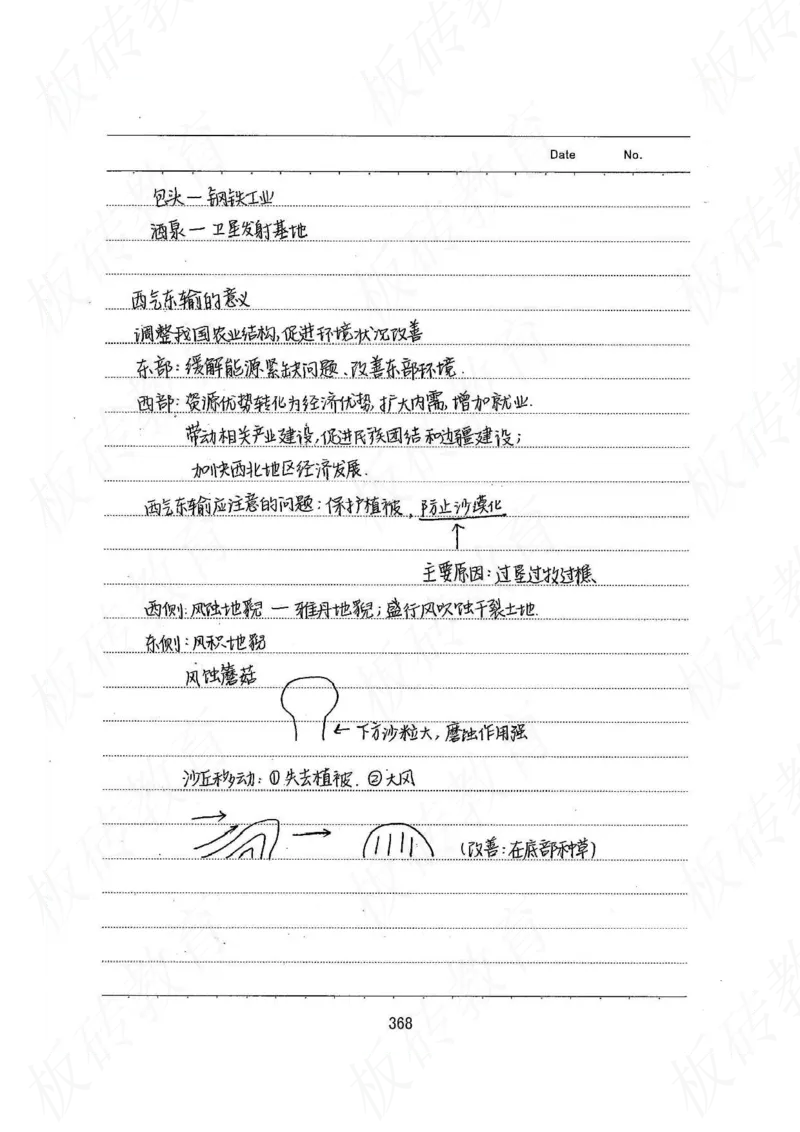 Date No.
包头—钢铁工业
酒泉—卫星发射基地
西气东输的意义
调整我国农业结构,促进环境状况改善
东部:缓解能源紧缺问题、改善东部环境.
西部:资源优势转化为经济优势,扩大内需,增加就业.
带动相关产业建设,促进民族团结和边疆建设;
加快西北地区经济发展.
西气东输应注意的问题:保护植被,防止沙漠化
↑
主要原因:过垦过牧过樵、
西侧:风蚀地貌—雅丹地貌;盛行风吹蚀干裂土地.
东侧:风积地貌
风蚀蘑菇
←下方沙粒大,磨蚀作用强
沙丘移动:①失去植被.②大风
(改善:在底部种草)
368
板砖教育